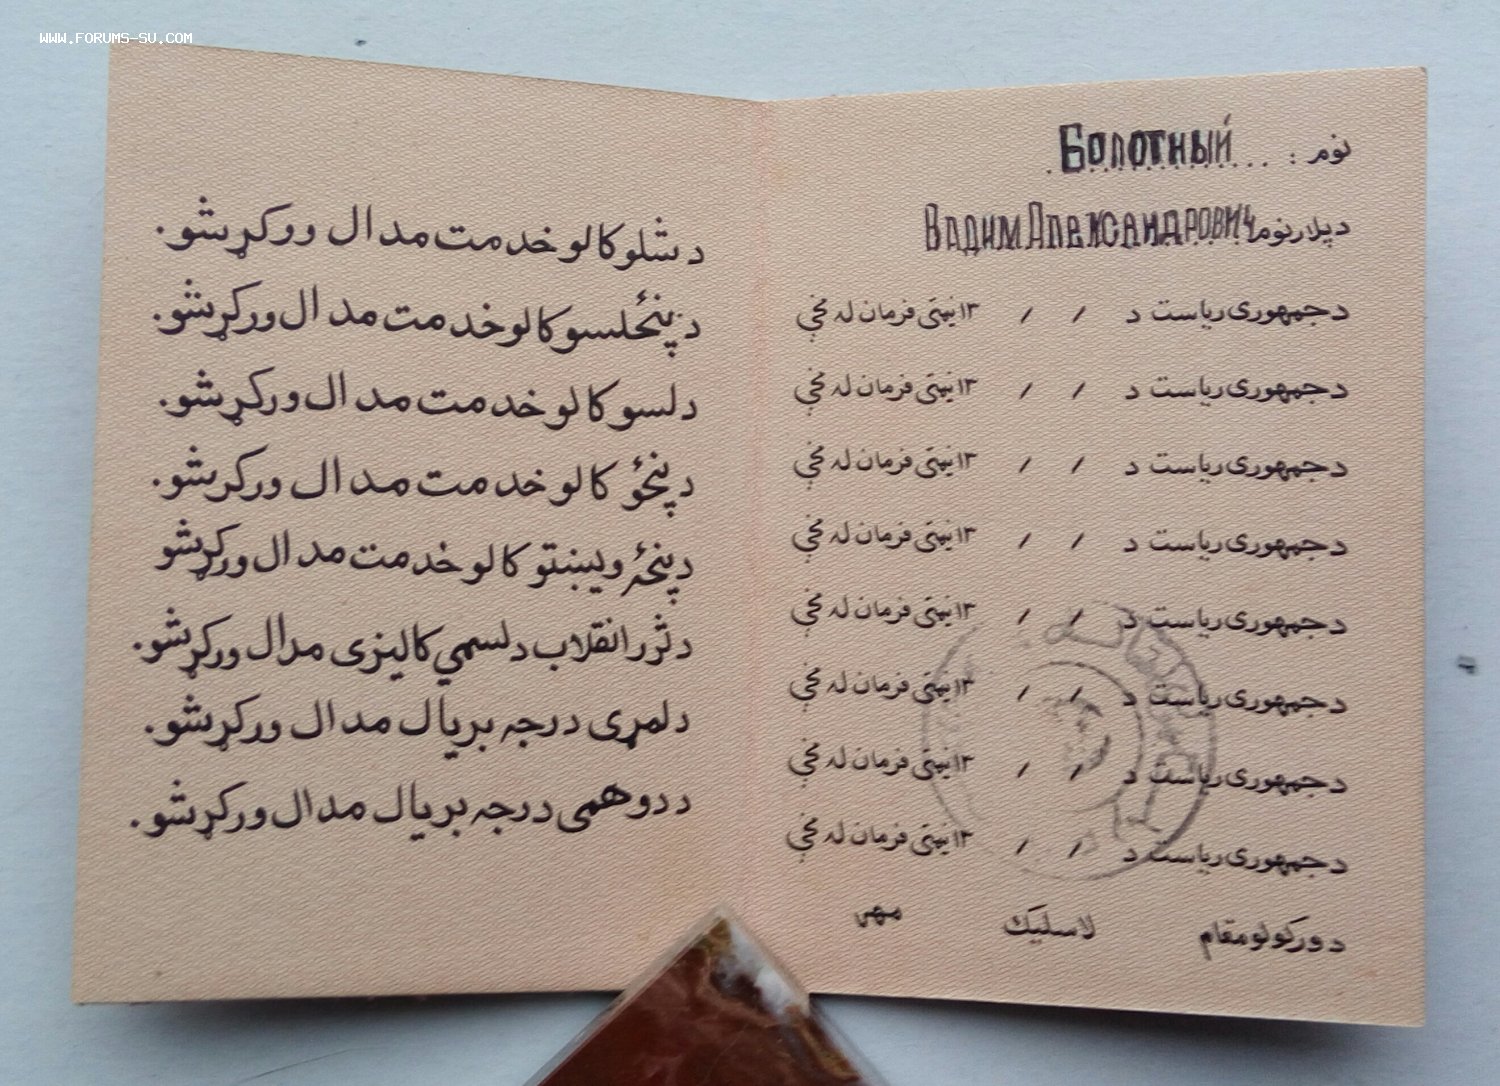 WWW.FORUMS-SU.COM
نوم : Болотный
د پلار نوم Вадим Александрович
د جمهوری ریاست د / / ۱۳ نېټې فرمان له مخې
د جمهوری ریاست د / / ۱۳ نېټې فرمان له مخې
د جمهوری ریاست د / / ۱۳ نېټې فرمان له مخې
د جمهوری ریاست د / / ۱۳ نېټې فرمان له مخې
د جمهوری ریاست د / / ۱۳ نېټې فرمان له مخې
د جمهوری ریاست د / / ۱۳ نېټې فرمان له مخې
د جمهوری ریاست د / / ۱۳ نېټې فرمان له مخې
د جمهوری ریاست د / / ۱۳ نېټې فرمان له مخې
د ورکولو مقام لاسلیک مهر
د شلو کالو خدمت مدال ورکړشو.
د پنځلسو کالو خدمت مدال ورکړشو.
د لسو کالو خدمت مدال ورکړشو.
د پنځو کالو خدمت مدال ورکړشو.
د پنځه ویښتو کالو خدمت مدال ورکړشو
د ثور انقلاب د لسمې کالیزی مدال ورکړشو.
د لمړی درجه بریال مدال ورکړشو.
د دوهمی درجه بریال مدال ورکړشو.